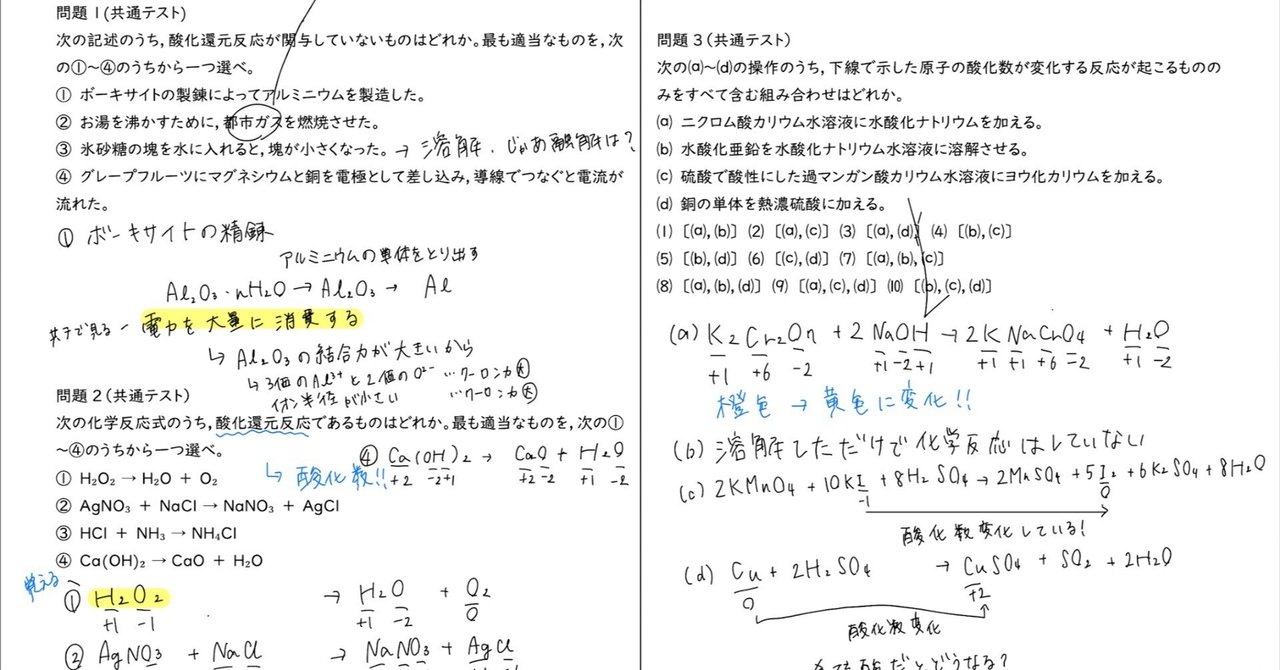 問題1(共通テスト)
次の記述のうち,酸化還元反応が関与していないものはどれか。最も適当なものを,次
の①〜④のうちから一つ選べ。
① ボーキサイトの製錬によってアルミニウムを製造した。
② お湯を沸かすために,都市ガスを燃焼させた。
③ 氷砂糖の塊を水に入れると,塊が小さくなった。→ 溶解.じゃあ融解は?
④ グレープフルーツにマグネシウムと銅を電極として差し込み,導線でつなぐと電流が
流れた。
① ボーキサイトの精錬
アルミニウムの単体をとり出す
Al₂O₃・nH₂O → Al₂O₃ → Al
電力を大量に消費する
↳ Al₂O₃の結合力が大きいから
↳ 3価のAl³⁺と2価のO²⁻ …クーロン力大
イオン半径が小さい …クーロン力大
問題2(共通テスト)
次の化学反応式のうち,酸化還元反応であるものはどれか。最も適当なものを,次の①
〜④のうちから一つ選べ。
↳ 酸化数!!
④ Ca(OH)₂ → CaO + H₂O
+2 -2+1 +2-2 +1 -2
① H₂O₂ → H₂O + O₂
② AgNO₃ + NaCl → NaNO₃ + AgCl
③ HCl + NH₃ → NH₄Cl
④ Ca(OH)₂ → CaO + H₂O
覚える
① H₂O₂ → H₂O + O₂
+1 -1 +1 -2 0
② AgNO₃ + NaCl → NaNO₃ + AgCl
問題3(共通テスト)
次の(a)〜(d)の操作のうち,下線で示した原子の酸化数が変化する反応が起こるものの
みをすべて含む組み合わせはどれか。
(a) ニクロム酸カリウム水溶液に水酸化ナトリウムを加える。
(b) 水酸化亜鉛を水酸化ナトリウム水溶液に溶解させる。
(c) 硫酸で酸性にした過マンガン酸カリウム水溶液にヨウ化カリウムを加える。
(d) 銅の単体を熱濃硫酸に加える。
(1) [(a),(b)] (2) [(a),(c)] (3) [(a),(d)] (4) [(b),(c)]
(5) [(b),(d)] (6) [(c),(d)] (7) [(a),(b),(c)]
(8) [(a),(b),(d)] (9) [(a),(c),(d)] (10) [(b),(c),(d)]
(a) K₂Cr₂O₇ + 2NaOH → 2KNaCrO₄ + H₂O
+1 +6 -2 +1 -2 +1 +1 +1 +6 -2 +1 -2
橙色 → 黄色に変化!!
(b) 溶解しただけで化学反応はしていない
(c) 2KMnO₄ + 10KI + 8H₂SO₄ → 2MnSO₄ + 5I₂ + 6K₂SO₄ + 8H₂O
-1 0
酸化数変化している!
(d) Cu + 2H₂SO₄ → CuSO₄ + SO₂ + 2H₂O
0 +2
酸化数変化